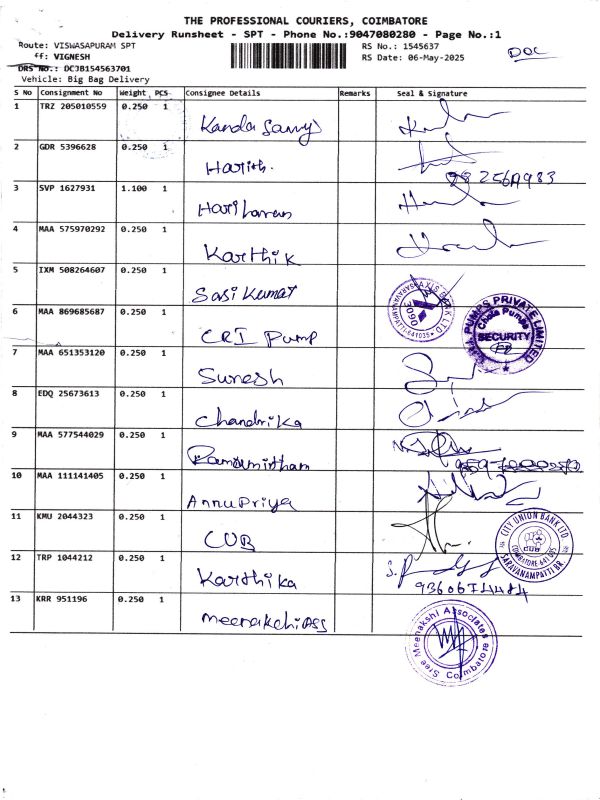 THE PROFESSIONAL COURIERS, COIMBATORE
Delivery Runsheet - SPT - Phone No.:9047080280 - Page No.:1
Route: VISWASAPURAM SPT
RS No.: 1545637
DOC
ff: VIGNESH
RS Date: 06-May-2025
DRS No.: DCJB154563701
Vehicle: Big Bag Delivery
S No Consignment No Weight PCS Consignee Details Remarks Seal & Signature
1 TRZ 205010559 0.250 1 Kanda Samy
2 GDR 5396628 0.250 1 Harish.
3 SVP 1627931 1.100 1 Hariharan
4 MAA 575970292 0.250 1 Karthik
5 IXM 508264607 0.250 1 Sasi Kumar
AXIS BANK LTD. SARAVANAMPATTI-641035 3090
6 MAA 869685687 0.250 1 CRI Pump
PUMPS PRIVATE LIMITED Chola Pumps SECURITY
7 MAA 651353120 0.250 1 Suresh
8 EDQ 25673613 0.250 1 Chandrika
9 MAA 577544029 0.250 1 Ramamirtham
10 MAA 111141405 0.250 1 Annupriya
11 KMU 2044323 0.250 1 CUB
CITY UNION BANK LTD. CUB COIMBATORE-641 035 SARAVANAMPATTI BR.
12 TRP 1044212 0.250 1 Karthika
13 KRR 951196 0.250 1 Meenakchi Ass
Sree Meenakshi Associates Coimbatore